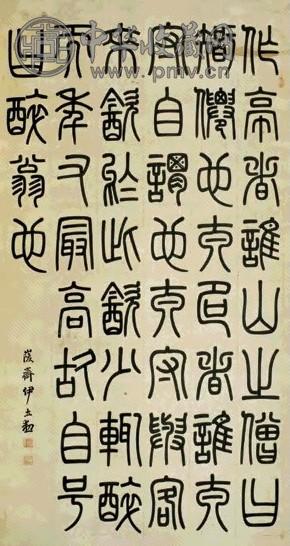 中华收藏网
www.pmv.cn
作亭者誰山之僧曰
智僊也名之者誰太
守自謂也太守與客
來飲於此飲少輒醉
而年又最高故自号
曰醉翁也
峻齋伊立勳